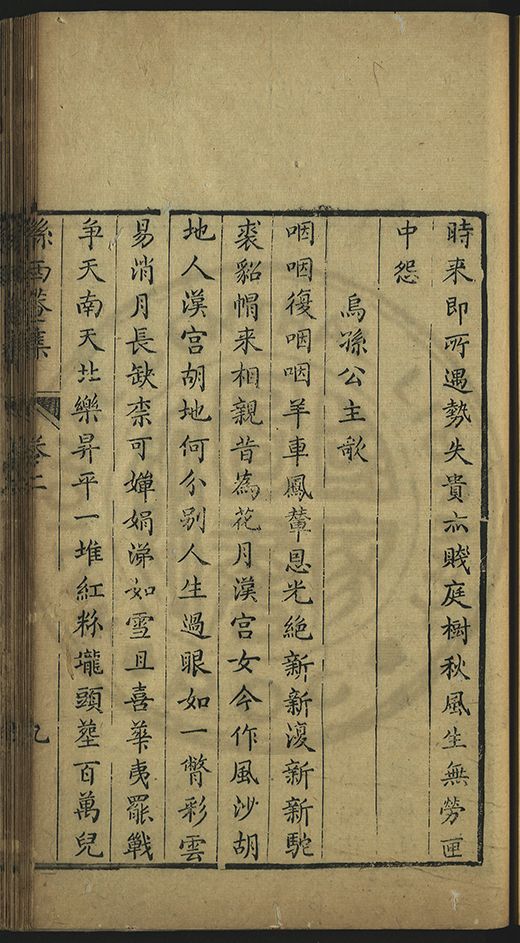 時来即所遇勢失貴亦賤庭樹秋風生無勞匣
中怨
烏孫公主歌
咽咽復咽咽羊車鳳輦恩光絶新新復新新駝
裘貂帽来相親昔為花月漢宮女今作風沙胡
地人漢宮胡地何分别人生過眼如一瞥彩雲
易消月長缺柰可嬋娟涕如雪且喜華夷罷戰
争天南天北樂昇平一堆紅粉壠頭塟百萬兒
孫西菴集
卷二
九